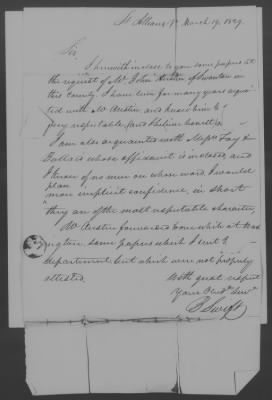 St Albans Vt March 19. 1829.
Sir,
I herewith inclose to you some papers at
the request of Mr John Austin of Swanton in
this County I have been for many years acquain
ted with Mr Austin and know him to be
very reputable and I believe honest
I am also acquainted with Messrs Fay &
Bullard whose affidavit is inclosed and
I know of no men on whose word I would
place
more implicit confidence, in short
they are of the most reputable character,
Mr Austin forwarded some while at Was
hington some papers which I sent to
department but which were not properly
attested.
With great respect
Your Obdt Servt
B Swift